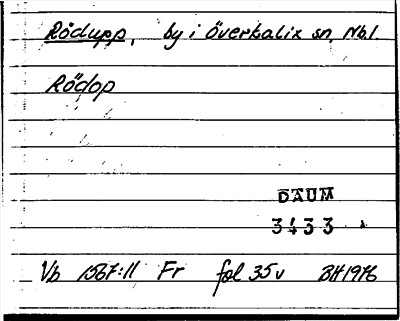 Rödupp, by i Överkalix sn, Nb.l
Rödop
DAUM
3433
Vb 1567:11 Fr fol 35v BH 1976